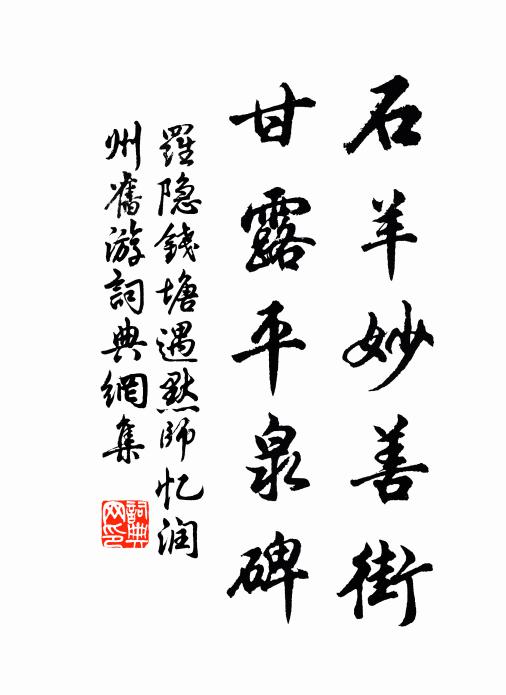 石羊妙善街
甘露平泉碑
羅隐錢塘遇默師忆润
州舊游詞典網集
詞典网印